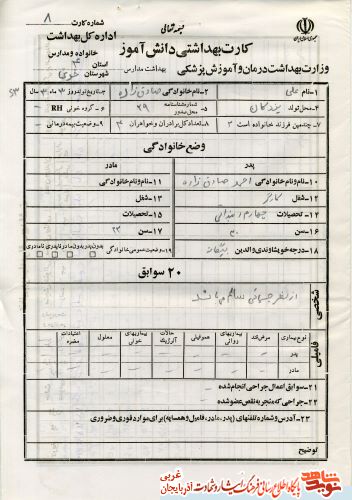 بسمه تعالی
شماره کارت ۸
جمهوری اسلامی ایران
کارت بهداشتی دانش آموز
اداره کل بهداشت
خانواده و مدارس
وزارت بهداشت درمان و آموزش پزشکی
بهداشت مدارس
استان
شهرستان خوی
۱- نام علی
۲- نام خانوادگی صادق زاده
۳- تاریخ تولد روز ماه سال ۵۳
۴- محل تولد
شماره شناسنامه ۲۹
محل صدور
۵-
۶- گروه خونی RH
۷- چندمین فرزند خانواده است ۳
۸- تعداد کل برادران و خواهران ۴
۹- وضعیت بیمه درمانی -
وضع خانوادگی
پدر
مادر
۱۰- نام و نام خانوادگی صادق زاده
۱۱- نام و نام خانوادگی
۱۲- شغل کارگر
۱۳- شغل
۱۴- تحصیلات چهارم ابتدائی
۱۵- تحصیلات
۱۶- سن ۳۰
۱۷- سن ۲۳
۱۸- درجه خویشاوندی والدین بیگانه
۱۹- وضعیت عمومی خانوادگی
بدون پدر بدون مادر ناپدری نامادری
۲۰ سوابق
شخصی
از نظر جسمانی سالم می باشد
فامیلی
نوع بیماری
مرض قند
بیماریهای روانی
هموفیلی
حالات آلرژیک
بیماریهای خونی
معلول
اعتیادات مضره
پدر
مادر
۲۱- سوابق اعمال جراحی انجام شده -
۲۲- جراحی که منجر به نقص عضو شده -
۲۳- آدرس و شماره تلفنهای (پدر، مادر، فامیل و همسایه) برای موارد فوری و ضروری
توضیح
پایگاه اطلاع رسانی فرهنگ ایثار و شهادت آذربایجان غربی
نوید شاهد